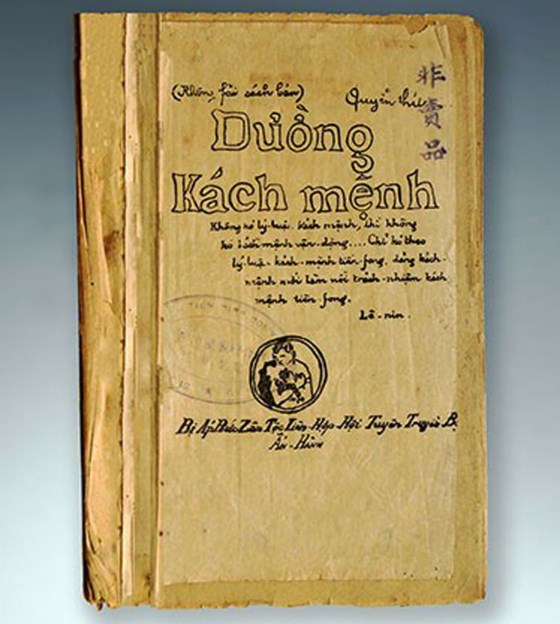 (Không fải sách bán) Quyển thứ
非賣品
Dường
Kách mệnh
Không kó lý-luận kách mệnh, thì không
kó kách mệnh vận-động.... Chỉ kó theo
lý-luận kách-mệnh tiền-fong, đảng kách-
mệnh mới làm nổi trách-nhiệm kách
mệnh tiền-fong.
Lê-nin.
Bị Áp Bức Zân Tộc Liên Hợp Hội Tuyên Truyền B.
Ấn-Hành